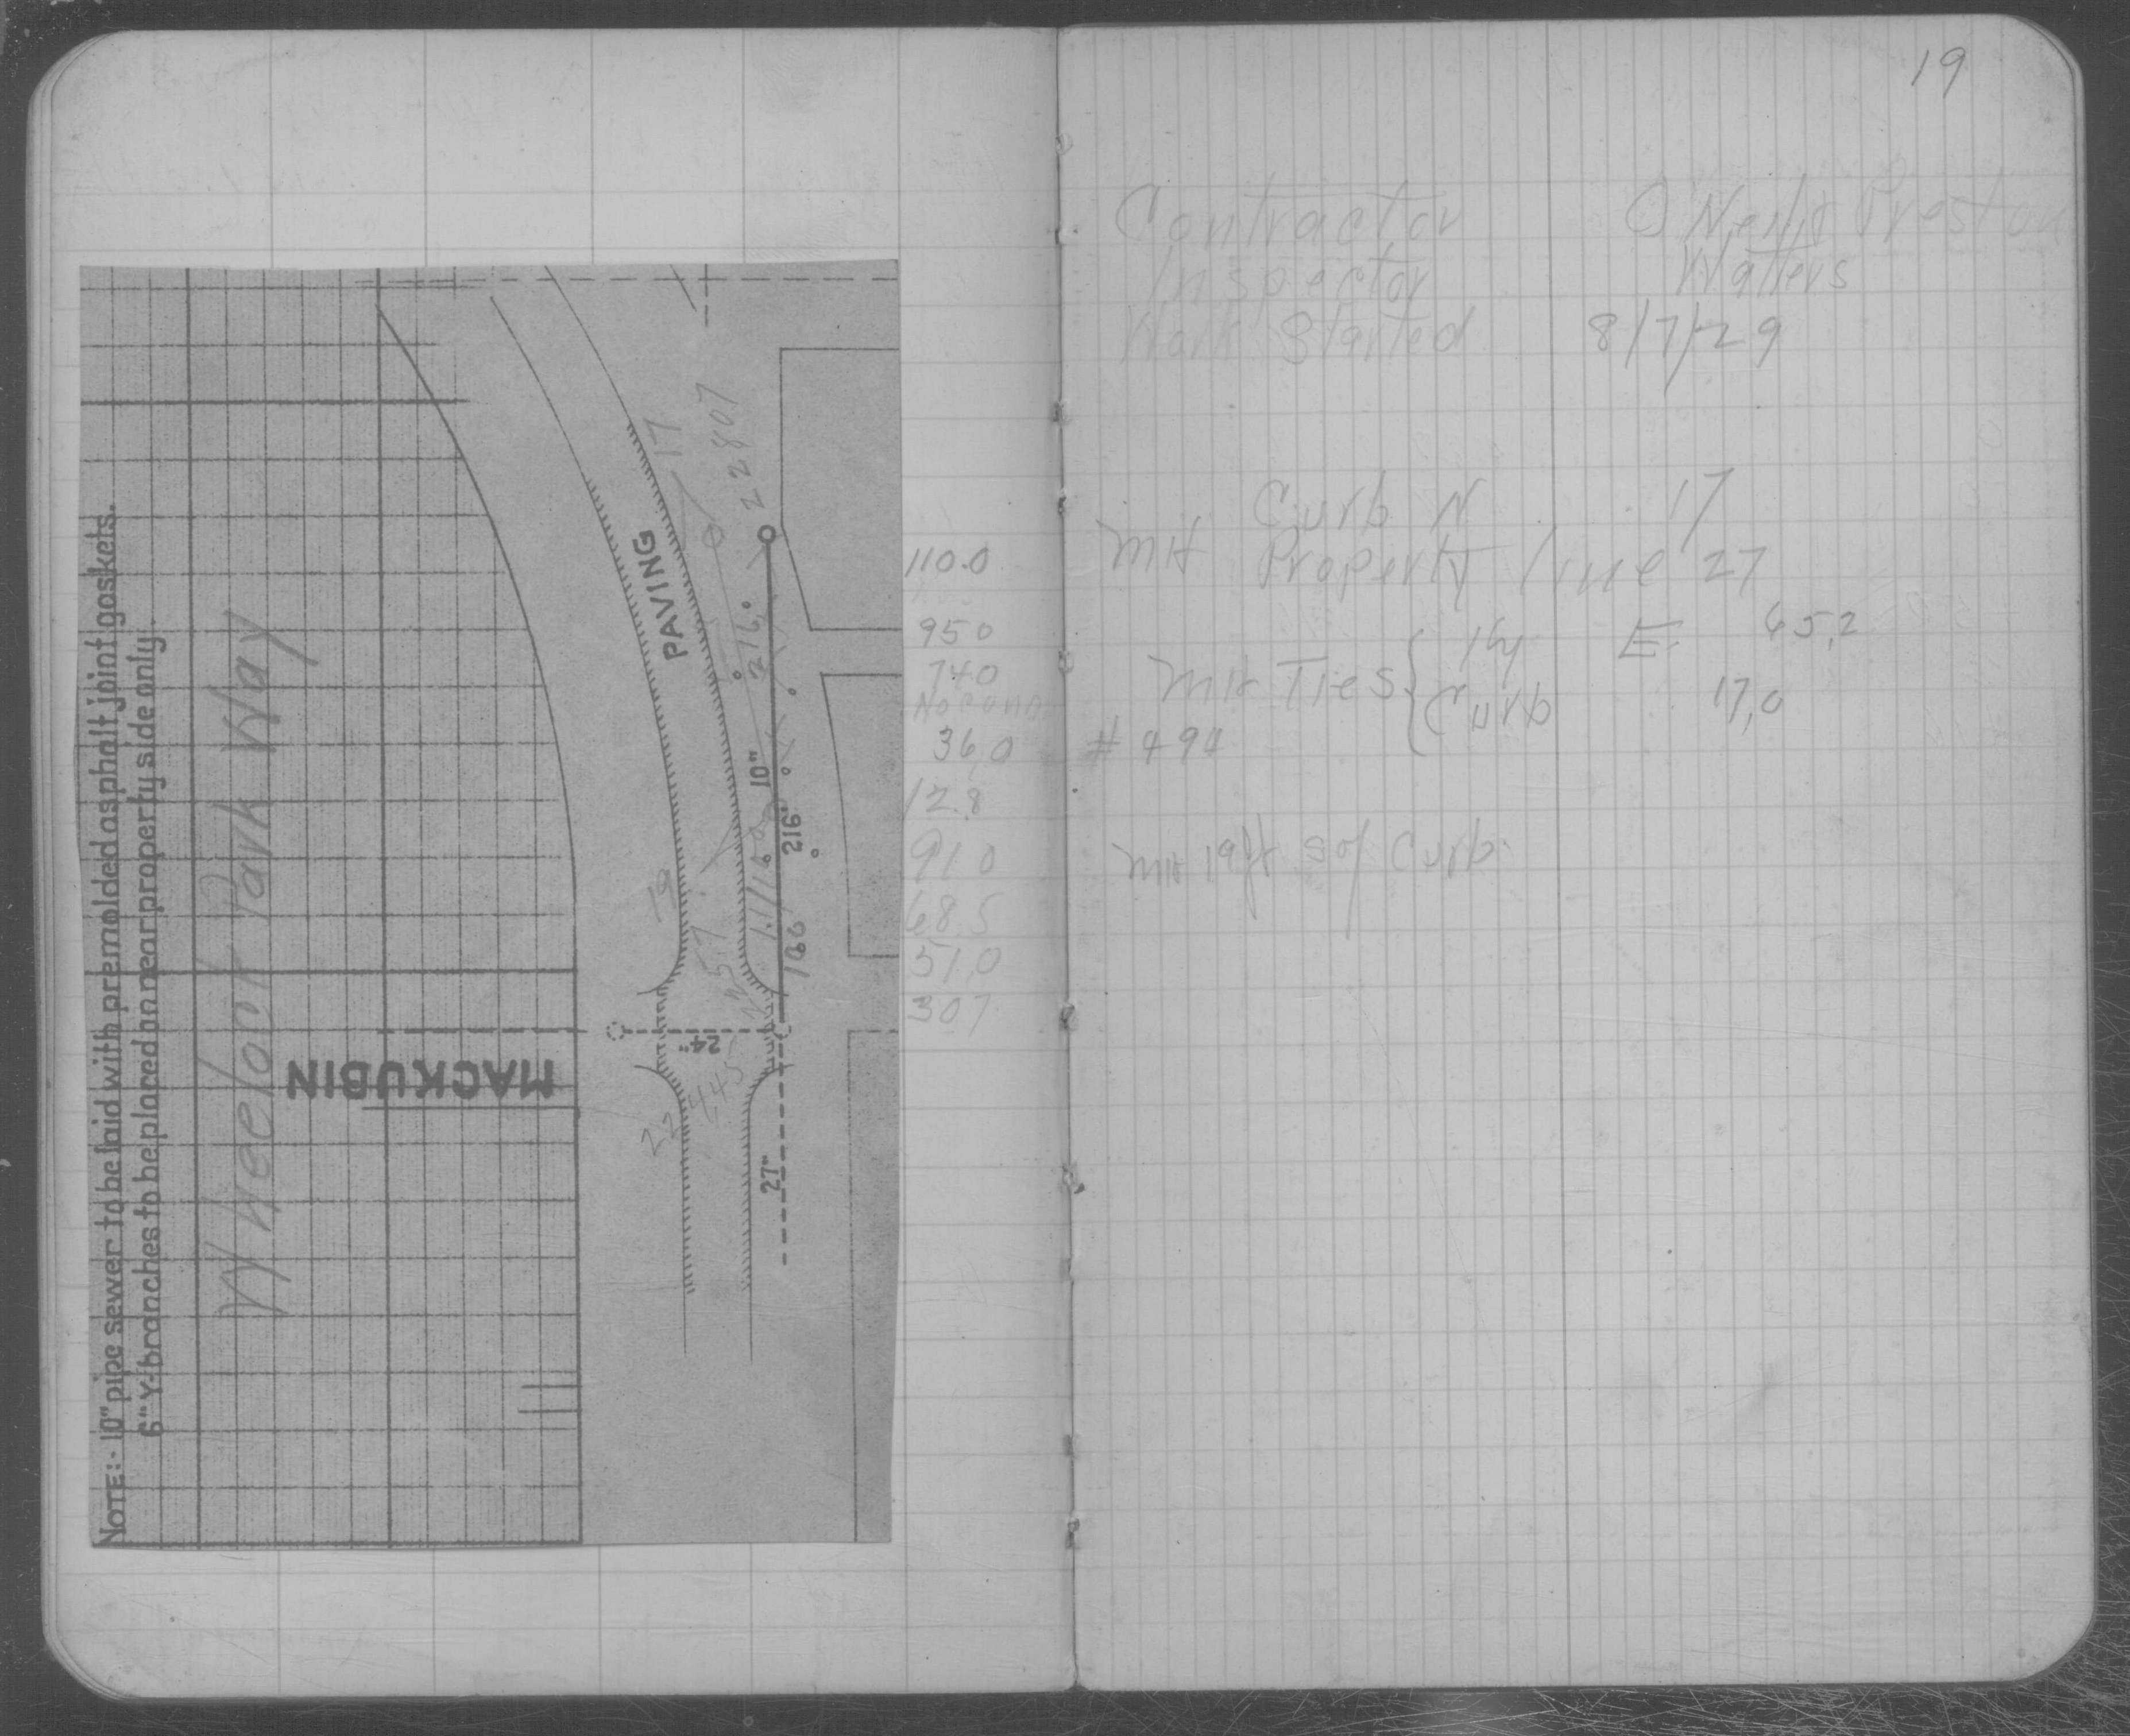 NOTE:- 10" pipe sewer to be laid with premolded asphalt joint gaskets.
6" Y branches to be placed on near property side only.
Wheelock Park Way
MACKUBIN
PAVING
17
22807
216.0
10"
216'
166
19
24"
22
27"
110.0
95 0
74 0
36,0
12.8
91 0
68.5
51,0
307
19
Contractor O'Neil & Preston
Inspector Walters
Work Started 8/7/29
Curb N 17
MH Property line 27
MH Ties { E 65,2
Curb 17,0
# 494
MH 19 ft S of Curb